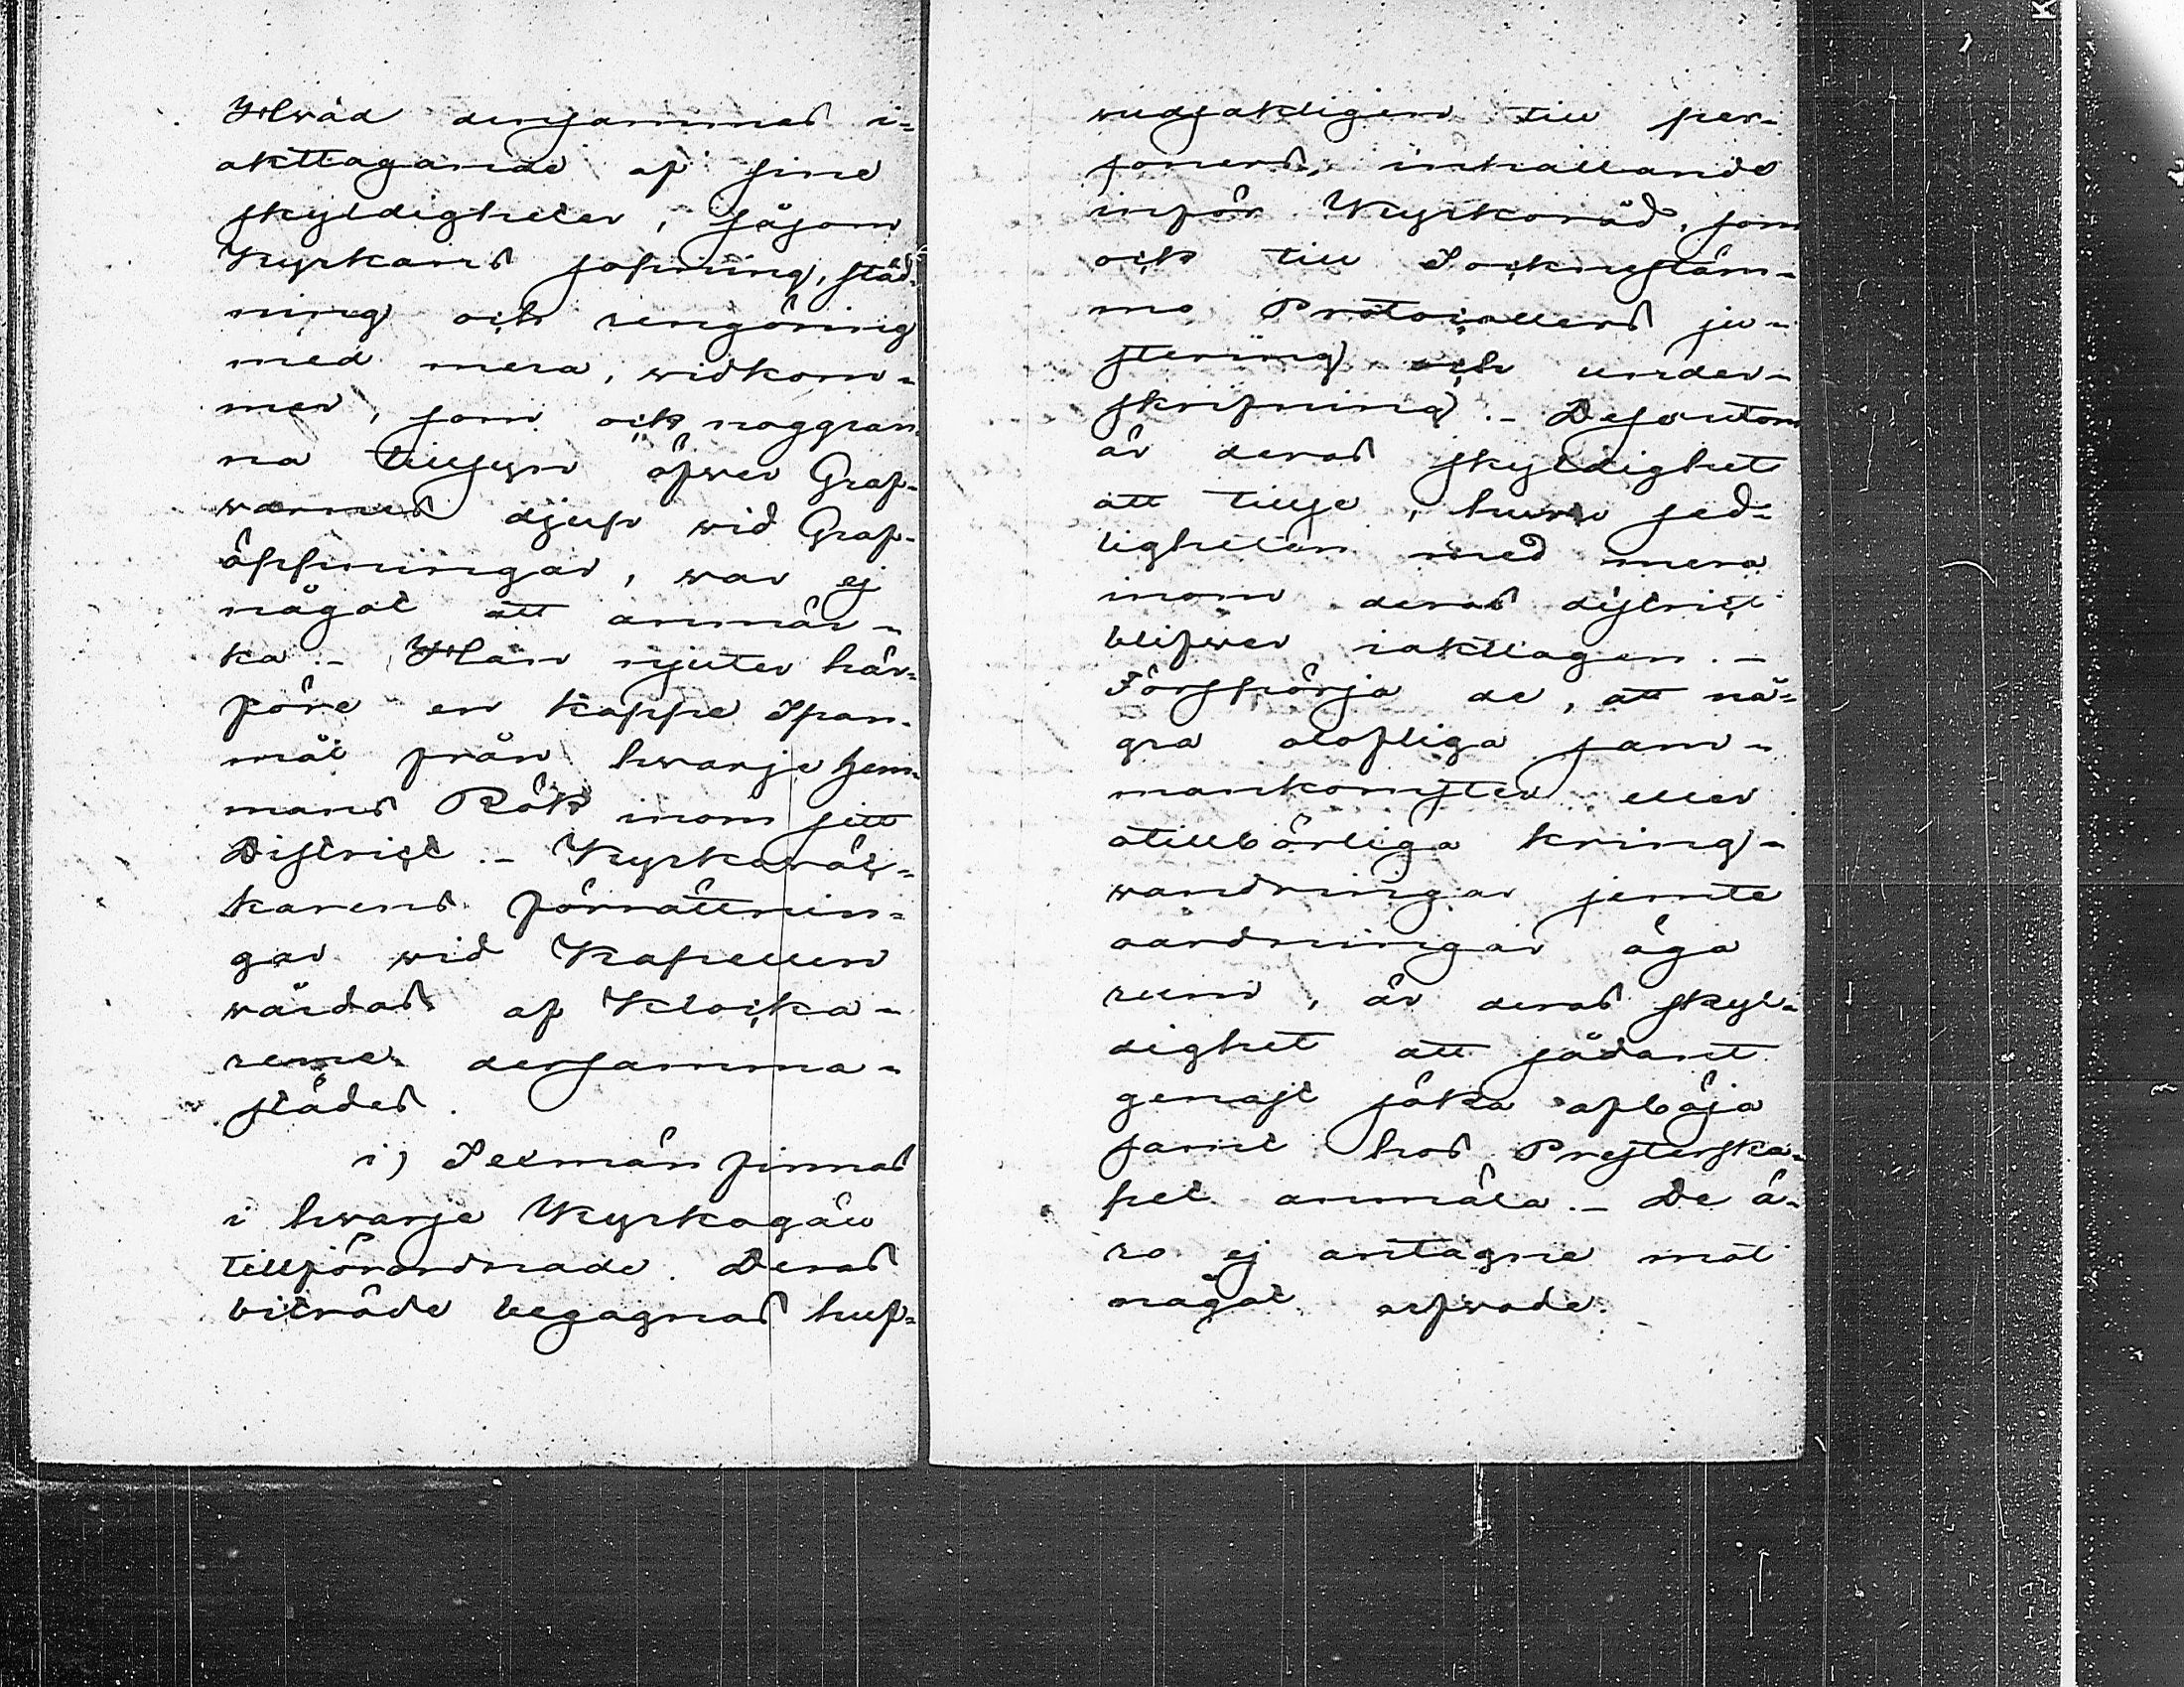 Hwad densammas i-
akttagande af sine
skyldigheter, såsom
Kyrkans sopning, städ-
ning och rengöring
med mera, widkom-
mer, som ock noggran-
na tillsyn öfwer Graf-
warnes djup wid Graf-
öppningar, war ej
något att anmär-
ka. - Han njuter här-
före en kappe Span-
mål från hwarje Hem-
mans Rök inom sitt
District. - Kyrkowäk-
tarens förrättnin-
gar wid Kapellen
wårdas af Klocka-
rene dersamma-
städes.
i) Sexmän finnas
i hwarje Kyrkogäll
tillförordnade. Deras
biträde begagnas huf-
wudsakligen till per-
soners, inkallande
inför Kyrkoråd, som
ock till Sockenstäm-
mo Protocollers ju-
stering och under-
skrifning. - Dessutom
är deras skyldighet
att tillse, huru sed-
ligheten med mera
inom deras district
blifwer iakttagen. -
Förspörja de, att nå-
gra olofliga sam-
mankomster eller
otillbörliga kring-
wandringar jemte
oordningar äga
rum, är deras skyl-
dighet att sådant
genast söka afböja
samt hos Presterska-
pet anmäla. - De ä-
ro ej antagne mot
något arfwode.